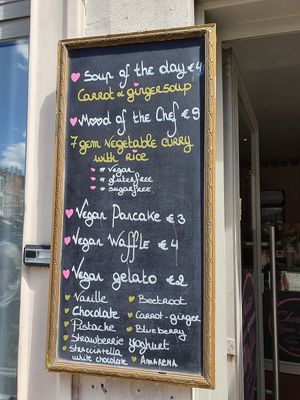 Soup of the day €4
Carrot & gingersoup
Mood of the Chef €9
7 gem Vegetable curry
with rice
# Vegan
# glutenfree
# sugarfree
Vegan Pancake €3
Vegan Waffle €4
Vegan gelato €2
Vanille
Beetroot
Chocolate
Carrot-ginger
Pistache
Blueberry
Strawberrie Yoghurt
Stracciatella
white chocolate
Amarena